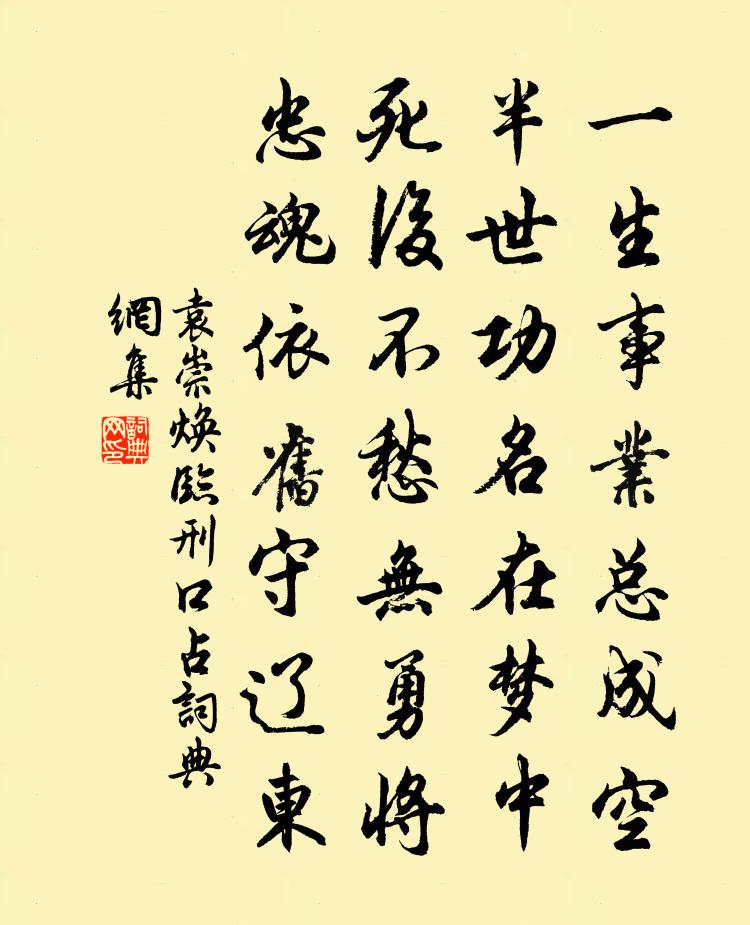 一生事業总成空
半世功名在梦中
死後不愁無勇將
忠魂依舊守辽東
袁崇焕臨刑口占詞典
網集
詞典
网印